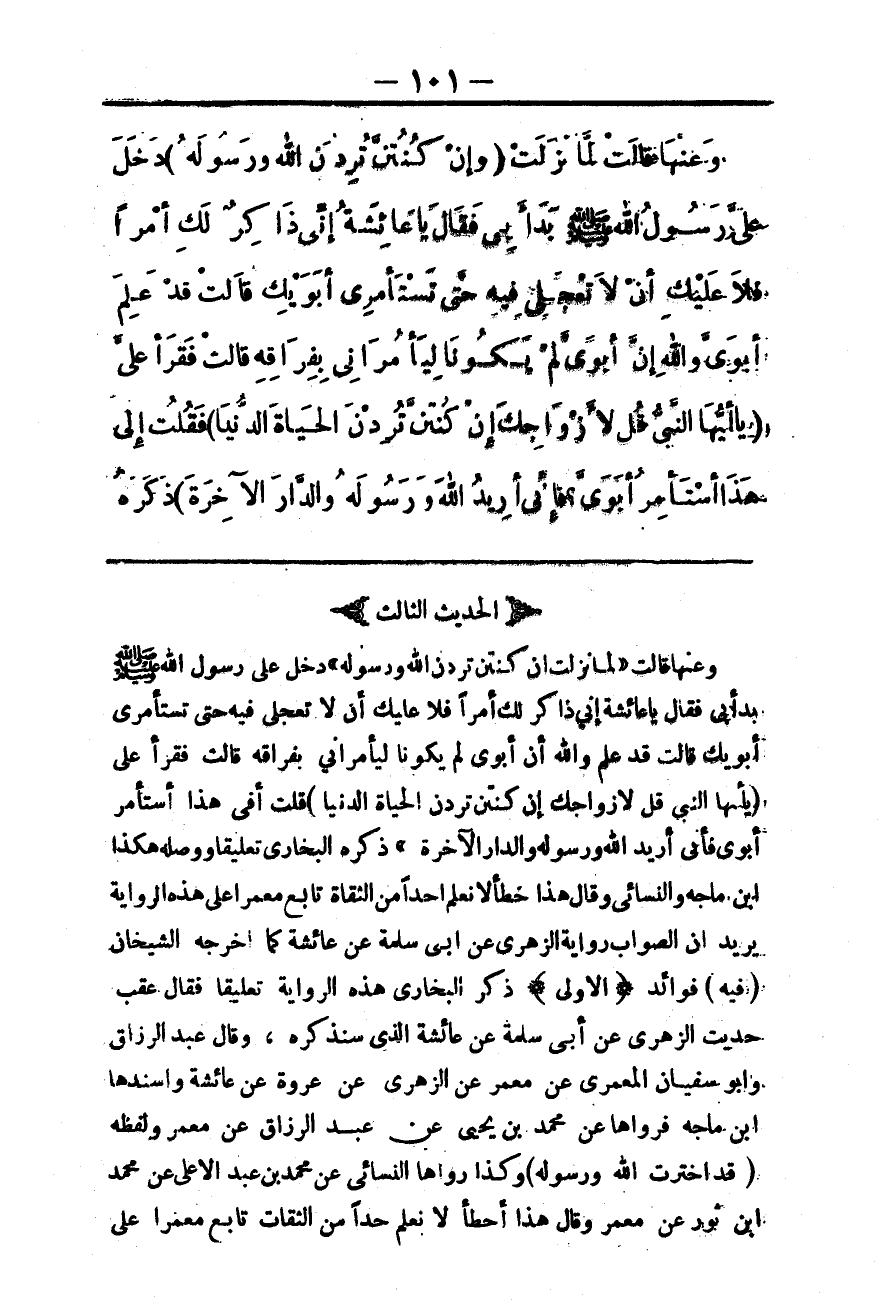 — ١٠١ —
وَعَنْهَا قَالَتْ لَمَّا نَزَلَتْ (وإنْ كُنْتُنَّ تُرِدْنَ اللهَ ورَسُولَهُ) دَخَلَ
عَلَيَّ رَسُولُ اللهِ ﷺ بَدَأَ بِي فَقَالَ يَا عَائِشَةُ إِنِّي ذَاكِرٌ لَكِ أمْراً
فلاَ عَلَيْكِ أنْ لاَ تَعْجَلِي فِيهِ حَتَّى تَسْتَأمِرِى أبَوَيْكِ قَالَتْ قدْ عَلِمَ
أبوَىَّ واللهِ إنَّ أبوَىَّ لَمْ يَكُونَا لِيَأمُرَانِى بِفِرَاقِهِ قالتْ فَقَرَأ علىَّ
(يا أيُّهَا النَّبِىُّ قُل لأزْوَاجِكَ إنْ كُنْتُنَّ تُرِدْنَ الحَيَاةَ الدُّنْيَا) فَقُلْتُ إلى
هَذَا أسْتَأمِرُ أبَوَىَّ؟ فإنِّى أرِيدُ اللهَ وَرَسُولَهُ والدَّارَ الآخِرَةَ) ذَكَرَهُ
﴿ الحديث الثالث ﴾
وعنها قالت «لما نزلت ان كنتن تردن الله ورسوله» دخل على رسول الله ﷺ
بدأ بي فقال يا عائشة إني ذاكر لك أمراً فلا عليك أن لا تعجلى فيه حتى تستأمرى
أبويك قالت قد علم والله أن أبوى لم يكونا ليأمراني بفراقه قالت فقرأ على
(يأيها النبي قل لازواجك إن كنتن تردن الحياة الدنيا) قلت أفى هذا أستأمر
أبوى فأنى أريد الله ورسوله والدار الآخرة » ذكره البخارى تعليقا ووصله هكذا
ابن ماجه والنسائى وقال هذا خطأ لا نعلم احداً من الثقاة تابع معمرا على هذه الرواية
يريد ان الصواب رواية الزهرى عن ابى سلمة عن عائشة كما اخرجه الشيخان
(فيه) فوائد ﴿ الاولى ﴾ ذكر البخارى هذه الرواية تعليقا فقال عقب
حديث الزهرى عن أبى سلمة عن عائشة الذى سنذكره ، وقال عبد الرزاق
وابو سفيان المعمرى عن معمر عن الزهرى عن عروة عن عائشة واسندها
ابن ماجه فرواها عن محمد بن يحيى عن عبد الرزاق عن معمر ولفظه
( قد اخترت الله ورسوله) وكذا رواها النسائى عن محمد بن عبد الاعلى عن محمد
ابن ثور عن معمر وقال هذا أخطأ لا نعلم حداً من الثقات تابع معمرا على